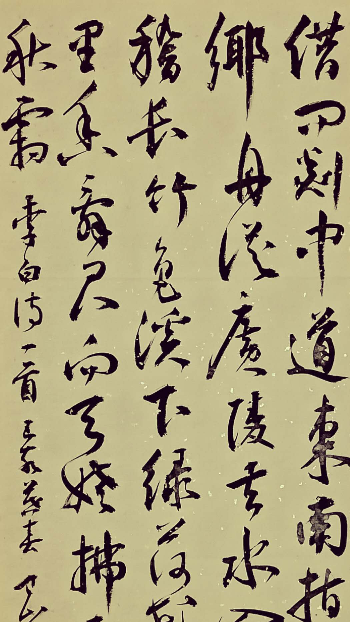 借問剡中道東南指
鄉舟從廣陵去水入
稽長竹色溪下綠荷花
里香辭君向天姥拂
秋霜 李白詩一首